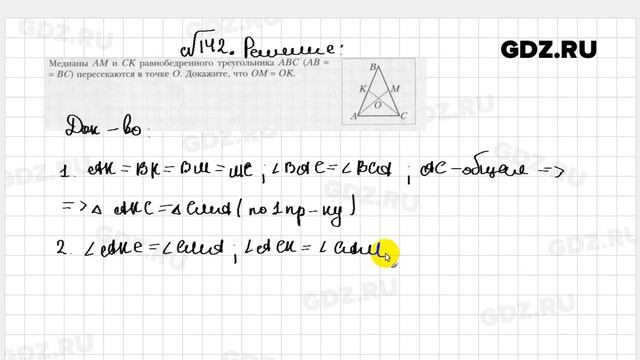 №142. Решение:
GDZ.RU
Медианы AM и CK равнобедренного треугольника ABC (AB =
= BC) пересекаются в точке O. Докажите, что OM = OK.
B
K M
O
A C
Док-во:
1. AK = BK = BM = MC ; ∠BAC = ∠BCA ; AC - общая =>
=> △ AKC = △ CMA ( по 1 пр-ку )
2. ∠AKC = ∠CMA ; ∠ACK = ∠CAM ;